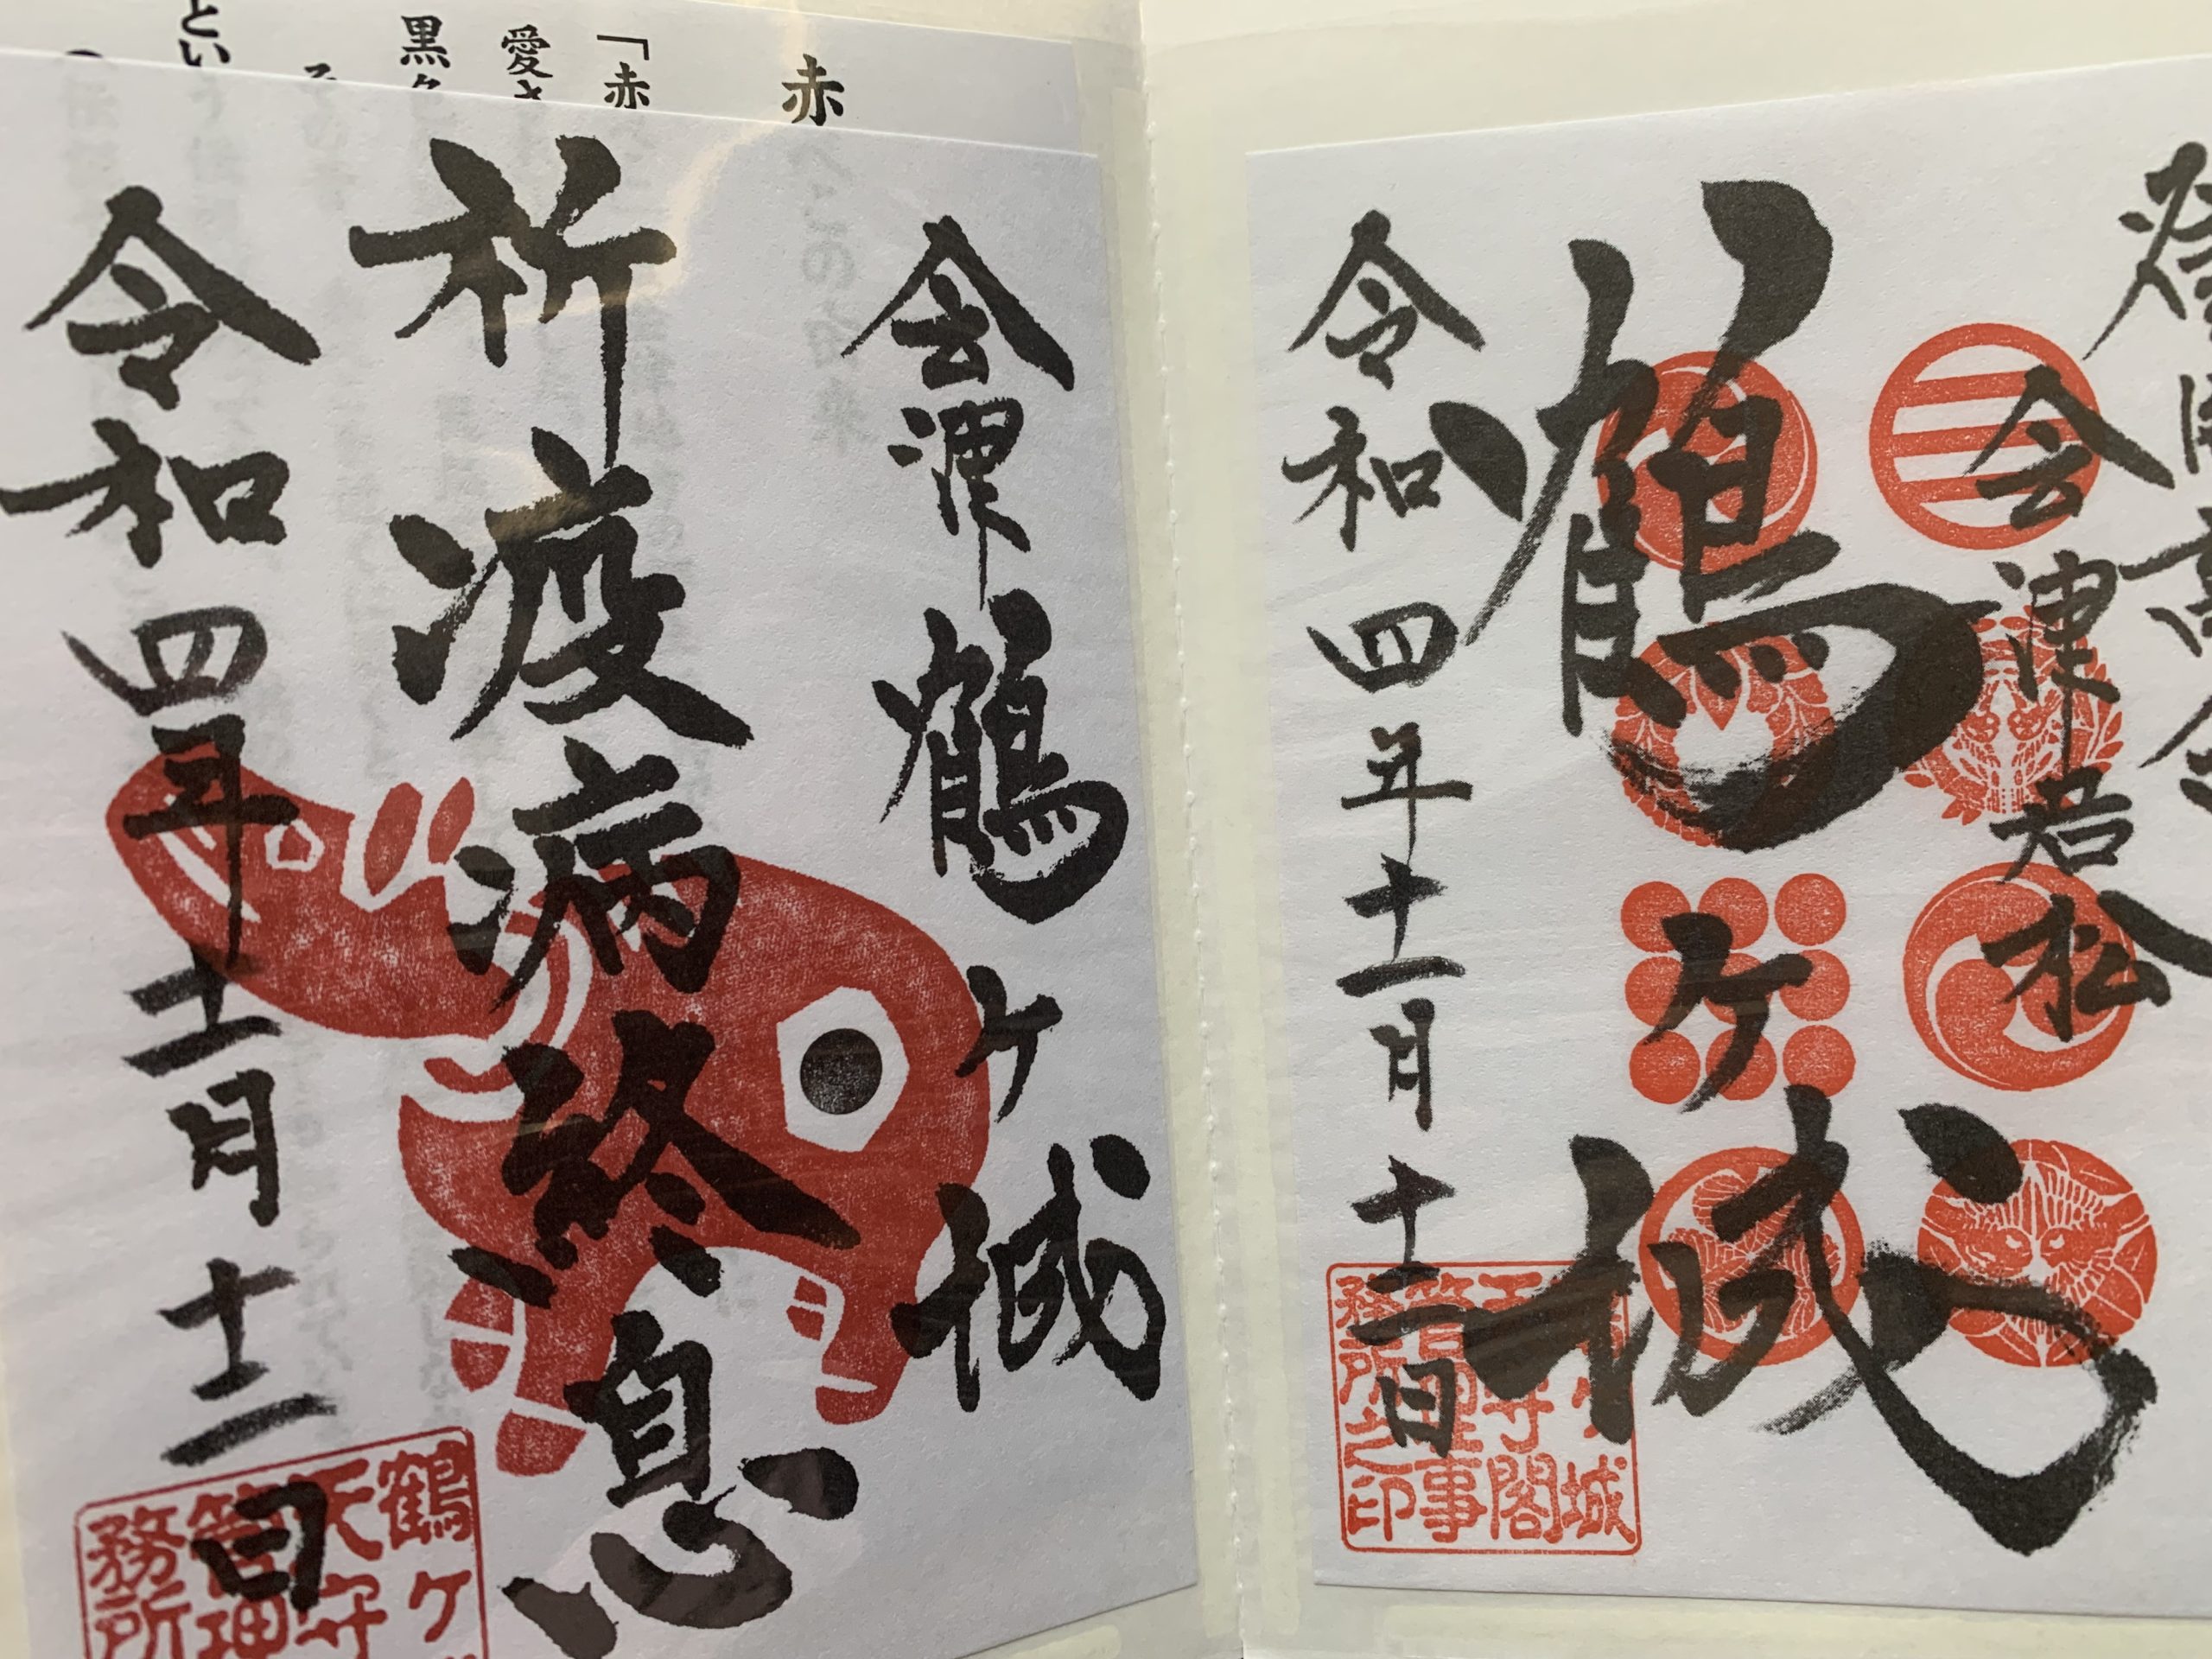 会津若松
鶴ヶ城
令和四年十一月十二日
鶴ヶ城
天守閣
管理事
務所之印
赤
「赤
愛さ
黒
とい
会津鶴ヶ城
祈疫病終息
令和四年十一月十二日
鶴ヶ
天守
管理
務所